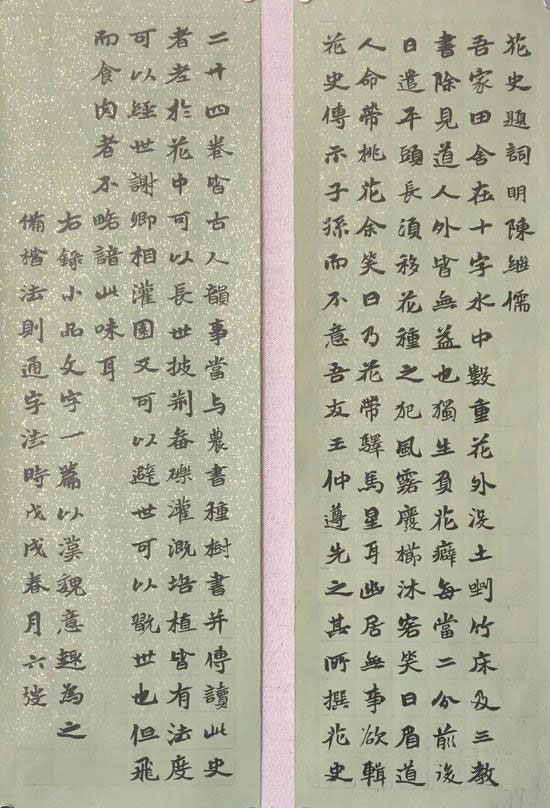 花史题詞明陳继儒
吾家田舍在十字水中數重花外设土剉竹床及三教
書除見道人外皆無益也獨生負花癖每當二分前後
日遣平頭長须移花種之犯風露廢櫛沐客笑曰眉道
人命帶桃花余笑曰乃花帶驛馬星耳幽居無事欲輯
花史傳示子孫而不意吾友王仲遵先之其所撰花史
二廾四卷皆古人韻事當与農書種樹書并傳讀此史
者老於花中可以長世披荆畚礫灌溉培植皆有法度
可以經世謝卿相灌園又可以避世可以翫世也但飛
而食肉者不略諳此味耳
右録小品文字一篇以漢魏意趣為之
備楷法則通字法時戊戌春月六